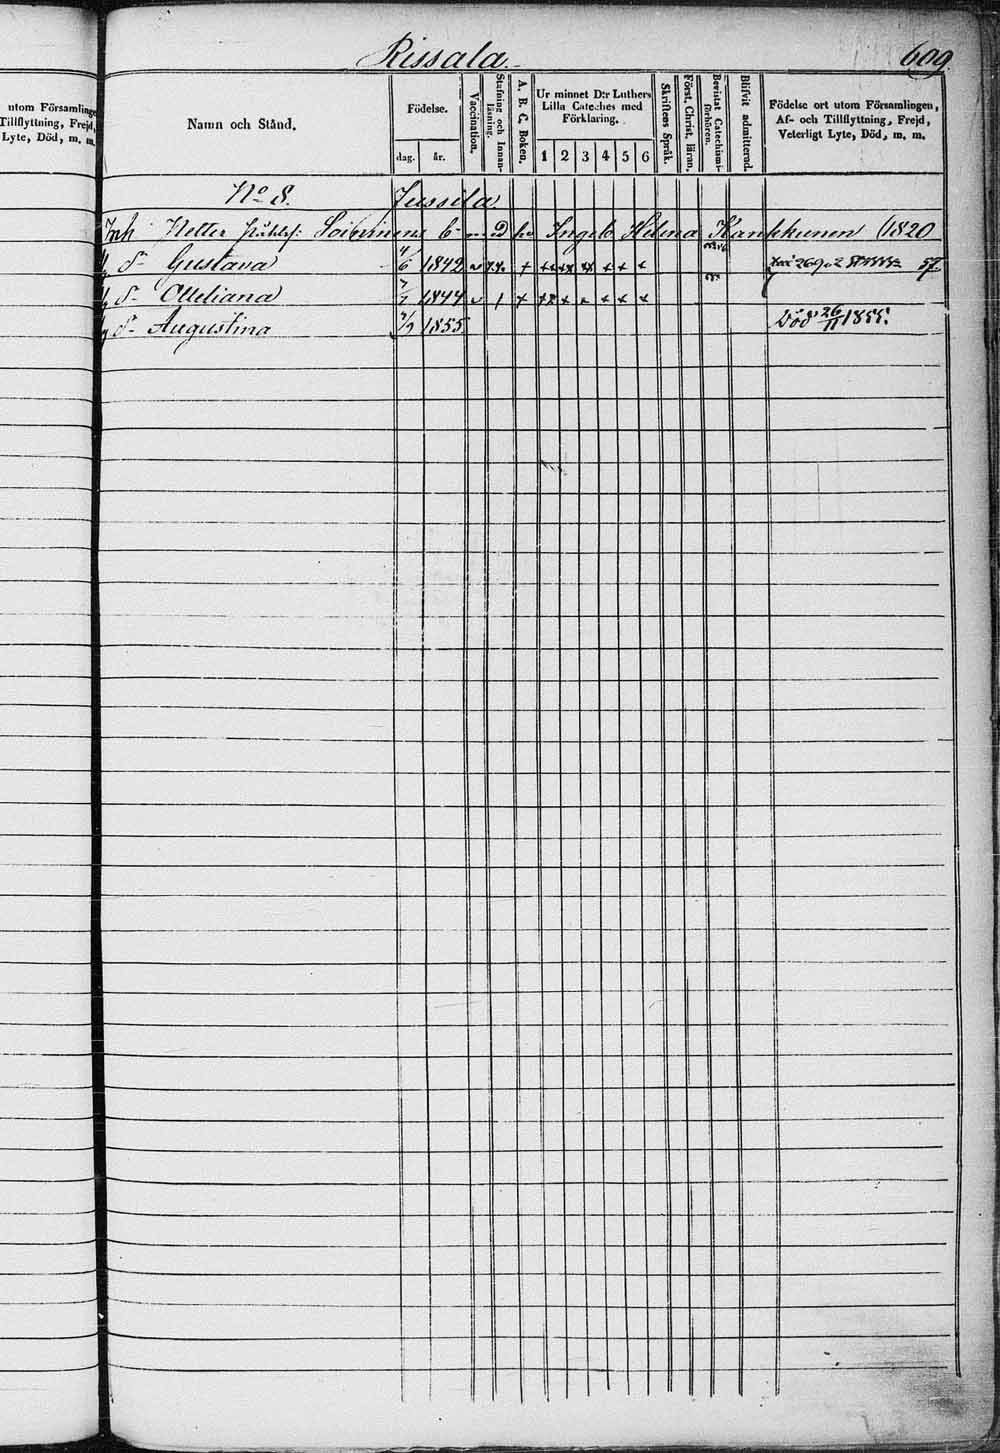 Rissala. 609
utom Församlingen,
Tillflyttning, Frejd,
Lyte, Död, m. m.
Namn och Stånd.
Födelse.
dag. år.
Vaccination.
Stafning och Innan-
läsning.
A. B. C. Boken.
Ur minnet D:r Luthers
Lilla Cateches med
Förklaring.
1 2 3 4 5 6
Skriftens Språk.
Först. Christ. läran.
Bevistat Catechismi-
förhören.
Blifvit admitterad.
Födelse ort utom Församlingen,
Af- och Tillflyttning, Frejd,
Veterligt Lyte, Död, m. m.
No 8. Jussila
Inh Petter Soininens Ingeb. Helena Kankkunen (1820
dr Gustava 4/6 1842 57
dr Otteliana 7/7 1844
dr Augustina 7/9 1855 Död 26/11 1855.